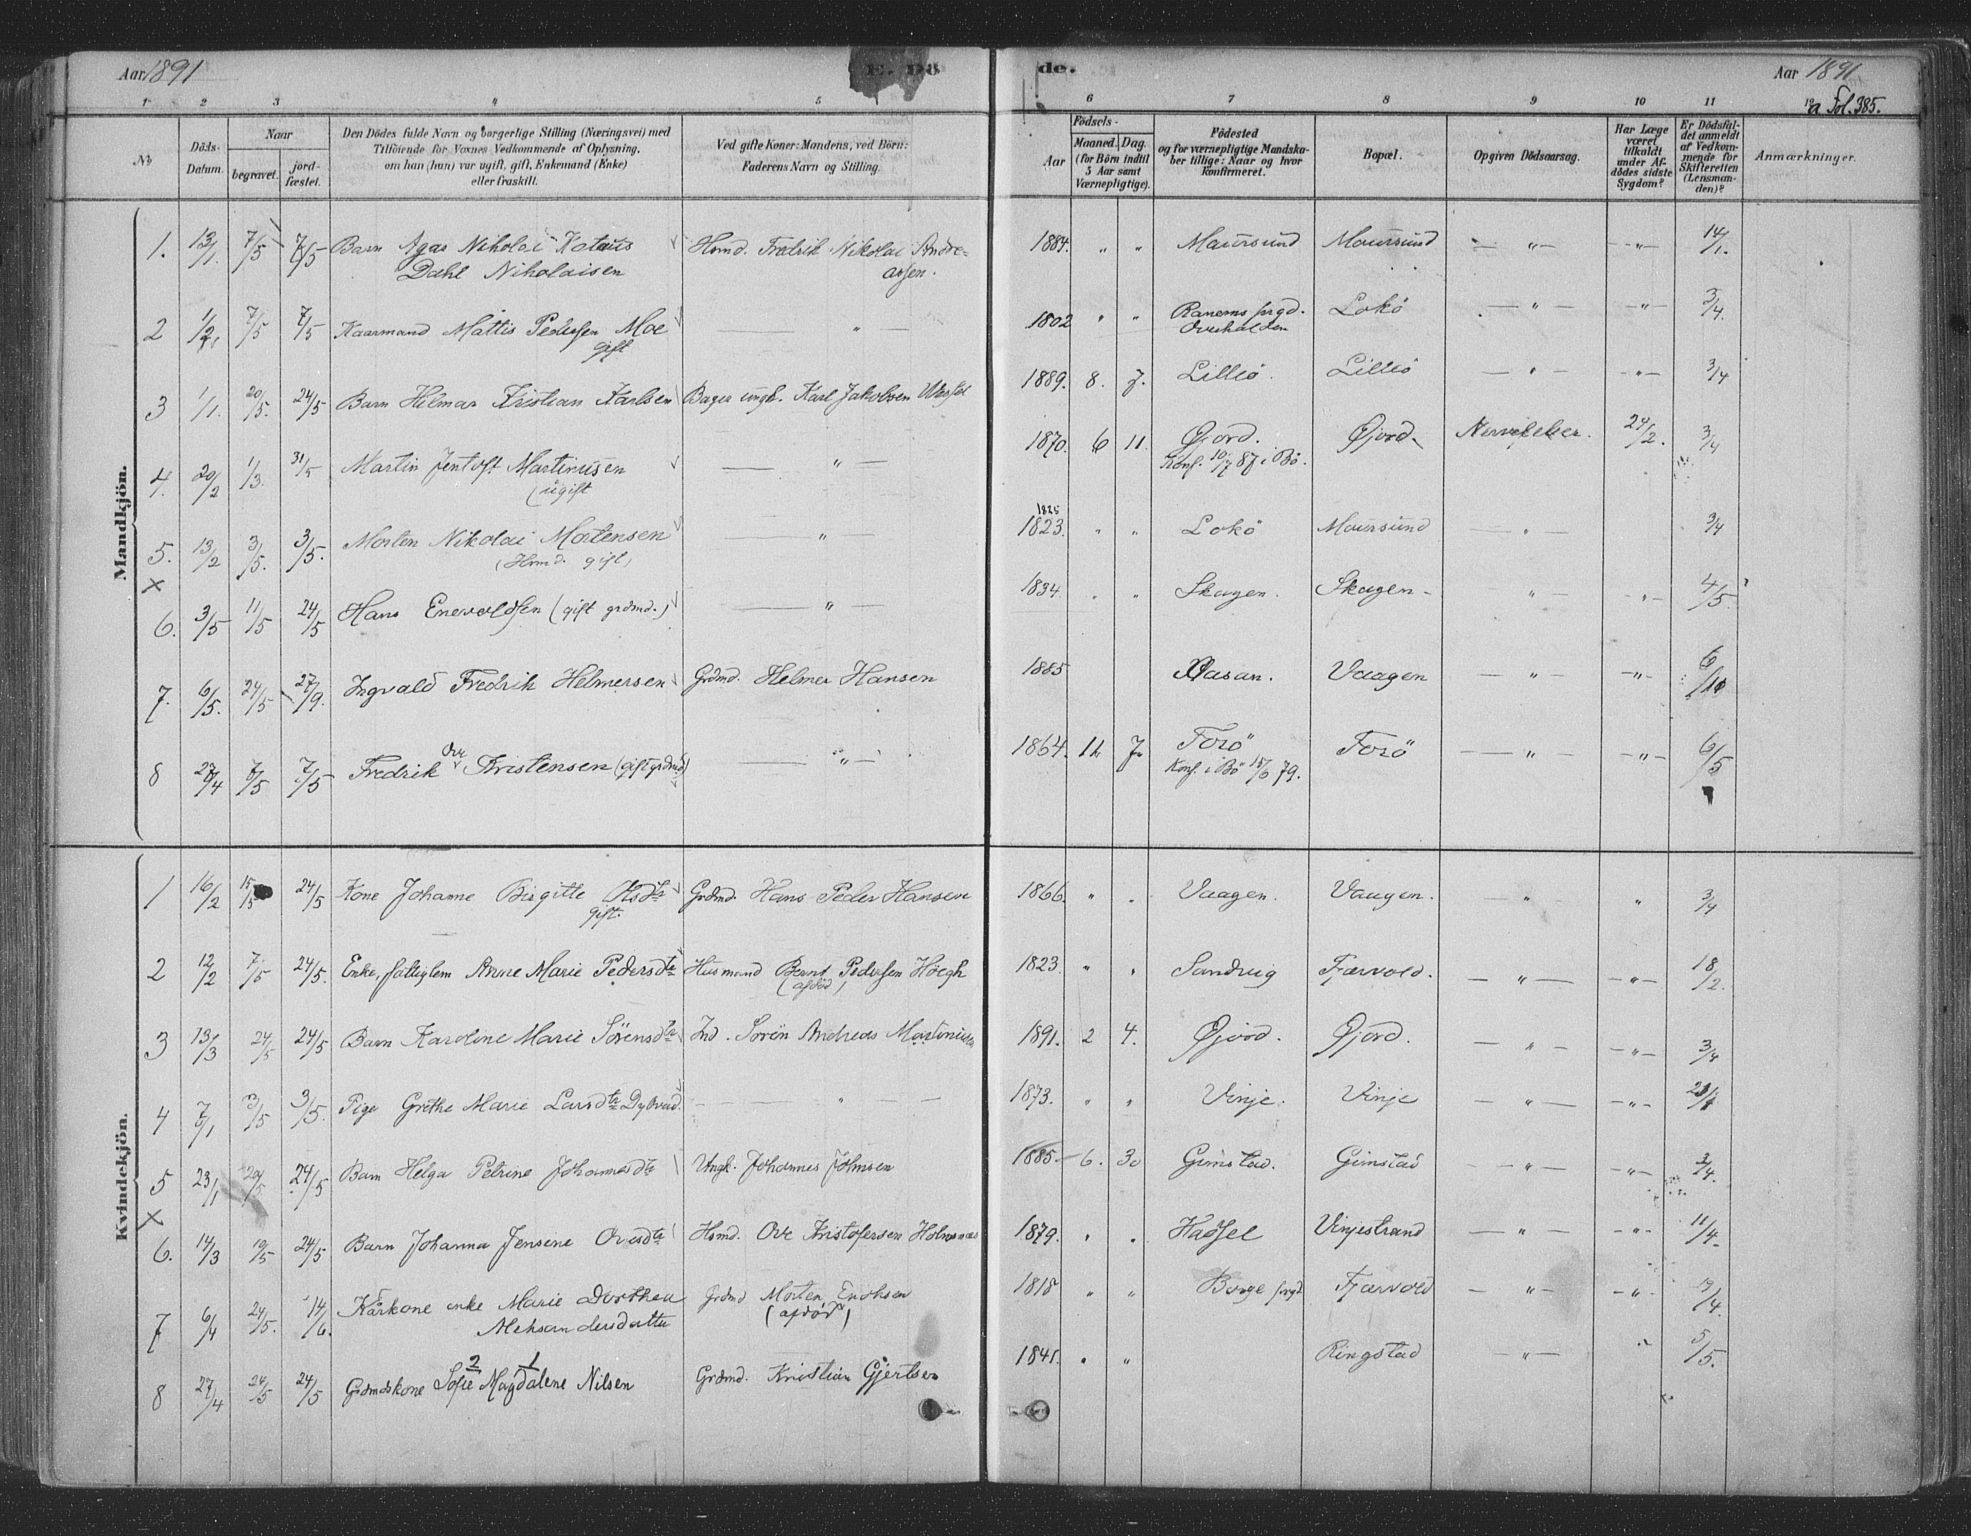 Aar 1891
E. Dö
de.
Aar 1891
a Fol. 385.
1 2 3 4 5 6 7 8 9 10 11
No
Döds-Datum.
Naar
begravet.
jord-fæstet.
Den Dödes fulde Navn og borgerlige Stilling (Næringsvei) med
Tilföiende for Voxnes Vedkommende af Oplysning,
om han (hun) var ugift, gift, Enkemand (Enke)
eller fraskilt.
Ved gifte Koner: Mandens, ved Börn:
Faderens Navn og Stilling.
Födsels-
Aar
Maaned. Dag.
(for Börn indtil
5 Aar samt
Værnepligtige).
Födested
og for værnepligtige Mandska-
ber tillige: Naar og hvor
konfirmeret.
Bopæl.
Opgiven Dödsaarsag.
Har Læge
været
tilkaldt
under Af-
dödes sidste
Sygdom?
Er Dödsfal-
det anmeldt
af Vedkom-
mende for
Skifteretten
(Lensman-
den)?
Anmærkninger.
Mandkjön.
1. 13/1. 7/5 7/5 Barn Agas Nikolai Hmd. Fredrik Nikolai Andre- 1884. " " Maursund Maursund — " — — " — 14/1.
Dahl Nikolaisen assen.
2 7/5 7/5 Kaarmand Mattis Pedersen Moe — " — 1802 " " Ranems prgd. Lokö — " — — " — 3/4.
gift Overhalden
3 1/1. 20/5. 24/5 Barn Hilmar Kristian Karlsen Bager ungk. Karl Jakobsen 1889. 8. 7. Lilleö. Lilleö — " — — " — 3/4
4. 20/2 1/3. 31/5 Martin Jentoft Martinusen — " — 1870. 6 11. Öjord. Öjord. Nervefeber. 24/2. 3/4
(ugift Konf. 10/7 87 i Bö.
5. 13/2 3/5. 3/5. Morten Nikolai Mortensen — " — 1825 1823. " " Lokö Maursund — " — 3/4
(Hsmd. gift)
6. 3/5 11/5 24/5 Hans Enevoldsen (gift grdmd.) — " — 1834 " " Skagen. Skagen — " — — " — 4/5
7. 6/5. 24/5 27/9. Ingvald Fredrik Helmersen Grdmd. Helmer Hansen 1885 Aasan. Vaagen — " — — " — 6/
8 7/5 Fredrik Ove Kristensen (gift grdmd) — " — 1864. 12 7. Forö Forö — " — — " — 6/5
Konf. i Bö 79.
Kvindekjön.
1 16/2 15/5 24/5 Kone Johanne Birgitte Grdmd. Hans Peder Hansen 1866. " " Vaagen. Vaagen. — " — " 3/4
gift.
2 12/2 7/5 24/5. Enke, fattiglem Anne Marie Pedersdtr Husmand Bernt Pedersen Höegh 1823. " " Sandvig Fjærvold. — " — — " — 18/2.
(afdöd)
3 13/3 24/5 24/5 Barn Karoline Marie Sörensdtr Ind. Sören Andreas Martinius 1891. 2 4. Öjord. Öjord. — " — — " — 3/4
4 3/5 3/5. Pige Grethe Marie Larsdtr — " — 1873. " " Vinje. Vinje — " — — " —
5 23/1 20/5 24/5 Barn Helga Petrine Johannesdtr Ungk. Johannes Johnsen 1885. 6. 30 Gimstad. Gimstad — " — — " — 3/4.
6. 14/3 10/5 24/5 Barn Johanna Jensene Ovesdtr Hsmd. Ove Kristofersen Holmsnes 1879. " " Hadsel Vinjestrand — " — — " — 11/4.
7 6/4 24/5. 14/6. Kårkone enke Marie Dorthea Grdmd Morten Enoksen 1818 " " Borge prgd. Fjærvold — " — — " — 3/4.
Aleksandersdatter (afdöd)
2 1
8 27/4 24/5 24/5 Grdmdskone Sofie Magdalene Nilsen Grdmd. Kristian Gjertsen 1841. " " Ringstad — " — 5/5.